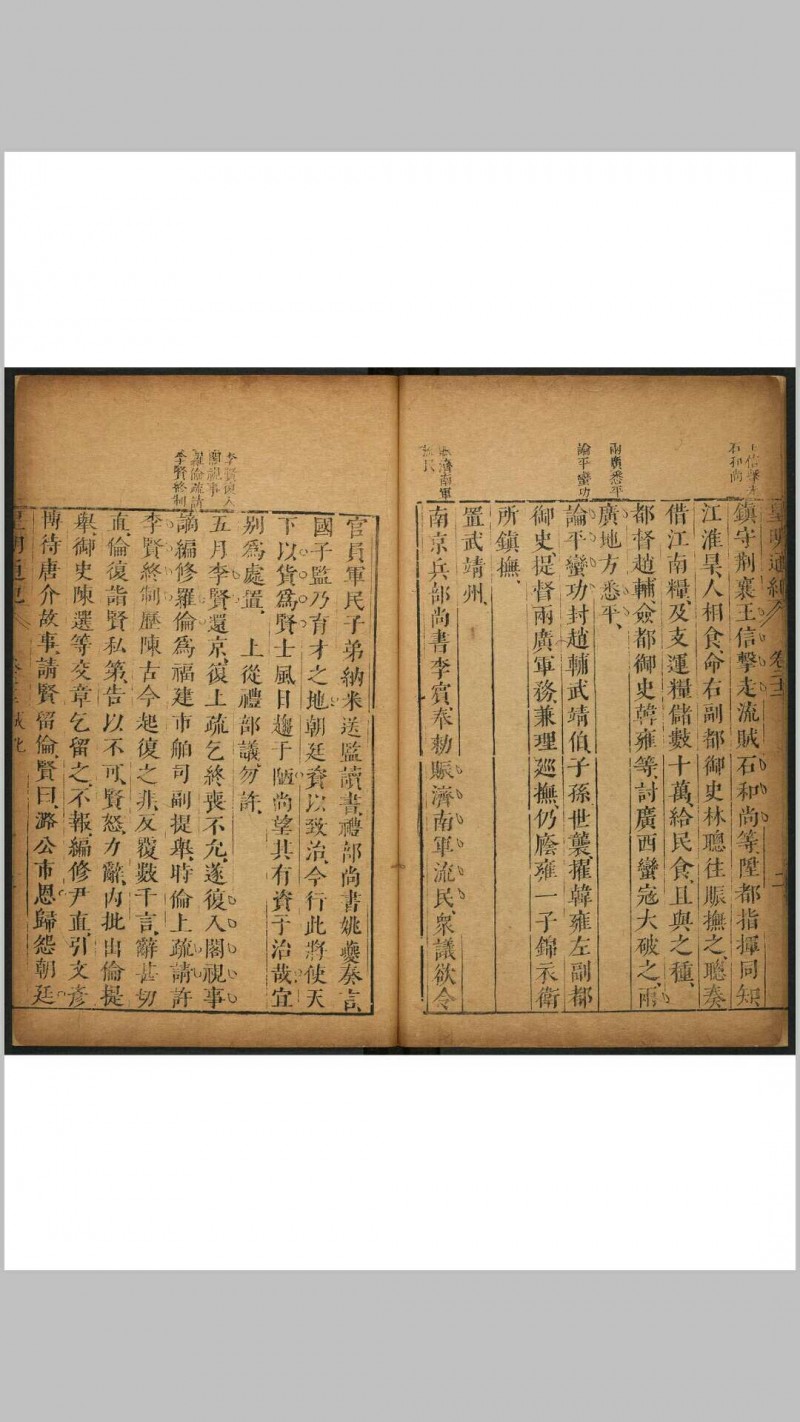 皇明通紀
卷二
王信擊走
石和尚
鎮守荆襄王信擊走流賊石和尚等陞都指揮同知
江淮旱人相食命右副都御史林聰往賑撫之聰奏
借江南糧及支運糧儲數十萬給民食且與之種
都督趙輔僉都御史韓雍等討廣西蠻寇大破之兩
兩廣悉平
廣地方悉平
論平蠻功
論平蠻功封趙輔武靖伯子孫世襲擢韓雍左副都
御史提督兩廣軍務兼理巡撫仍廕雍一子錦衣衛
所鎮撫
置武靖州
賑濟南軍
流民
南京兵部尚書李賓奉勅賑濟南軍流民衆議欲令
官員軍民子弟納米送監讀書禮部尚書姚夔奏言
國子監乃育才之地朝廷資以致治今行此將使天
下以貨爲賢士風日趨于陋尚望其有資于治哉宜
別爲處置 上從禮部議勿許
李賢復入
閣視事
五月李賢還京復上疏乞終喪不允遂復入閣視事
羅倫疏請
李賢終制
謫編修羅倫爲福建市舶司副提舉時倫上疏請許
李賢終制歷陳古今起復之非反覆數千言辭甚切
直倫復詣賢私第告以不可賢怒力辭內批出倫提
舉御史陳選等交章乞留之不報編修尹直引文彥
博待唐介故事請賢留倫賢曰潞公市恩歸怨朝廷
皇明通紀
成化